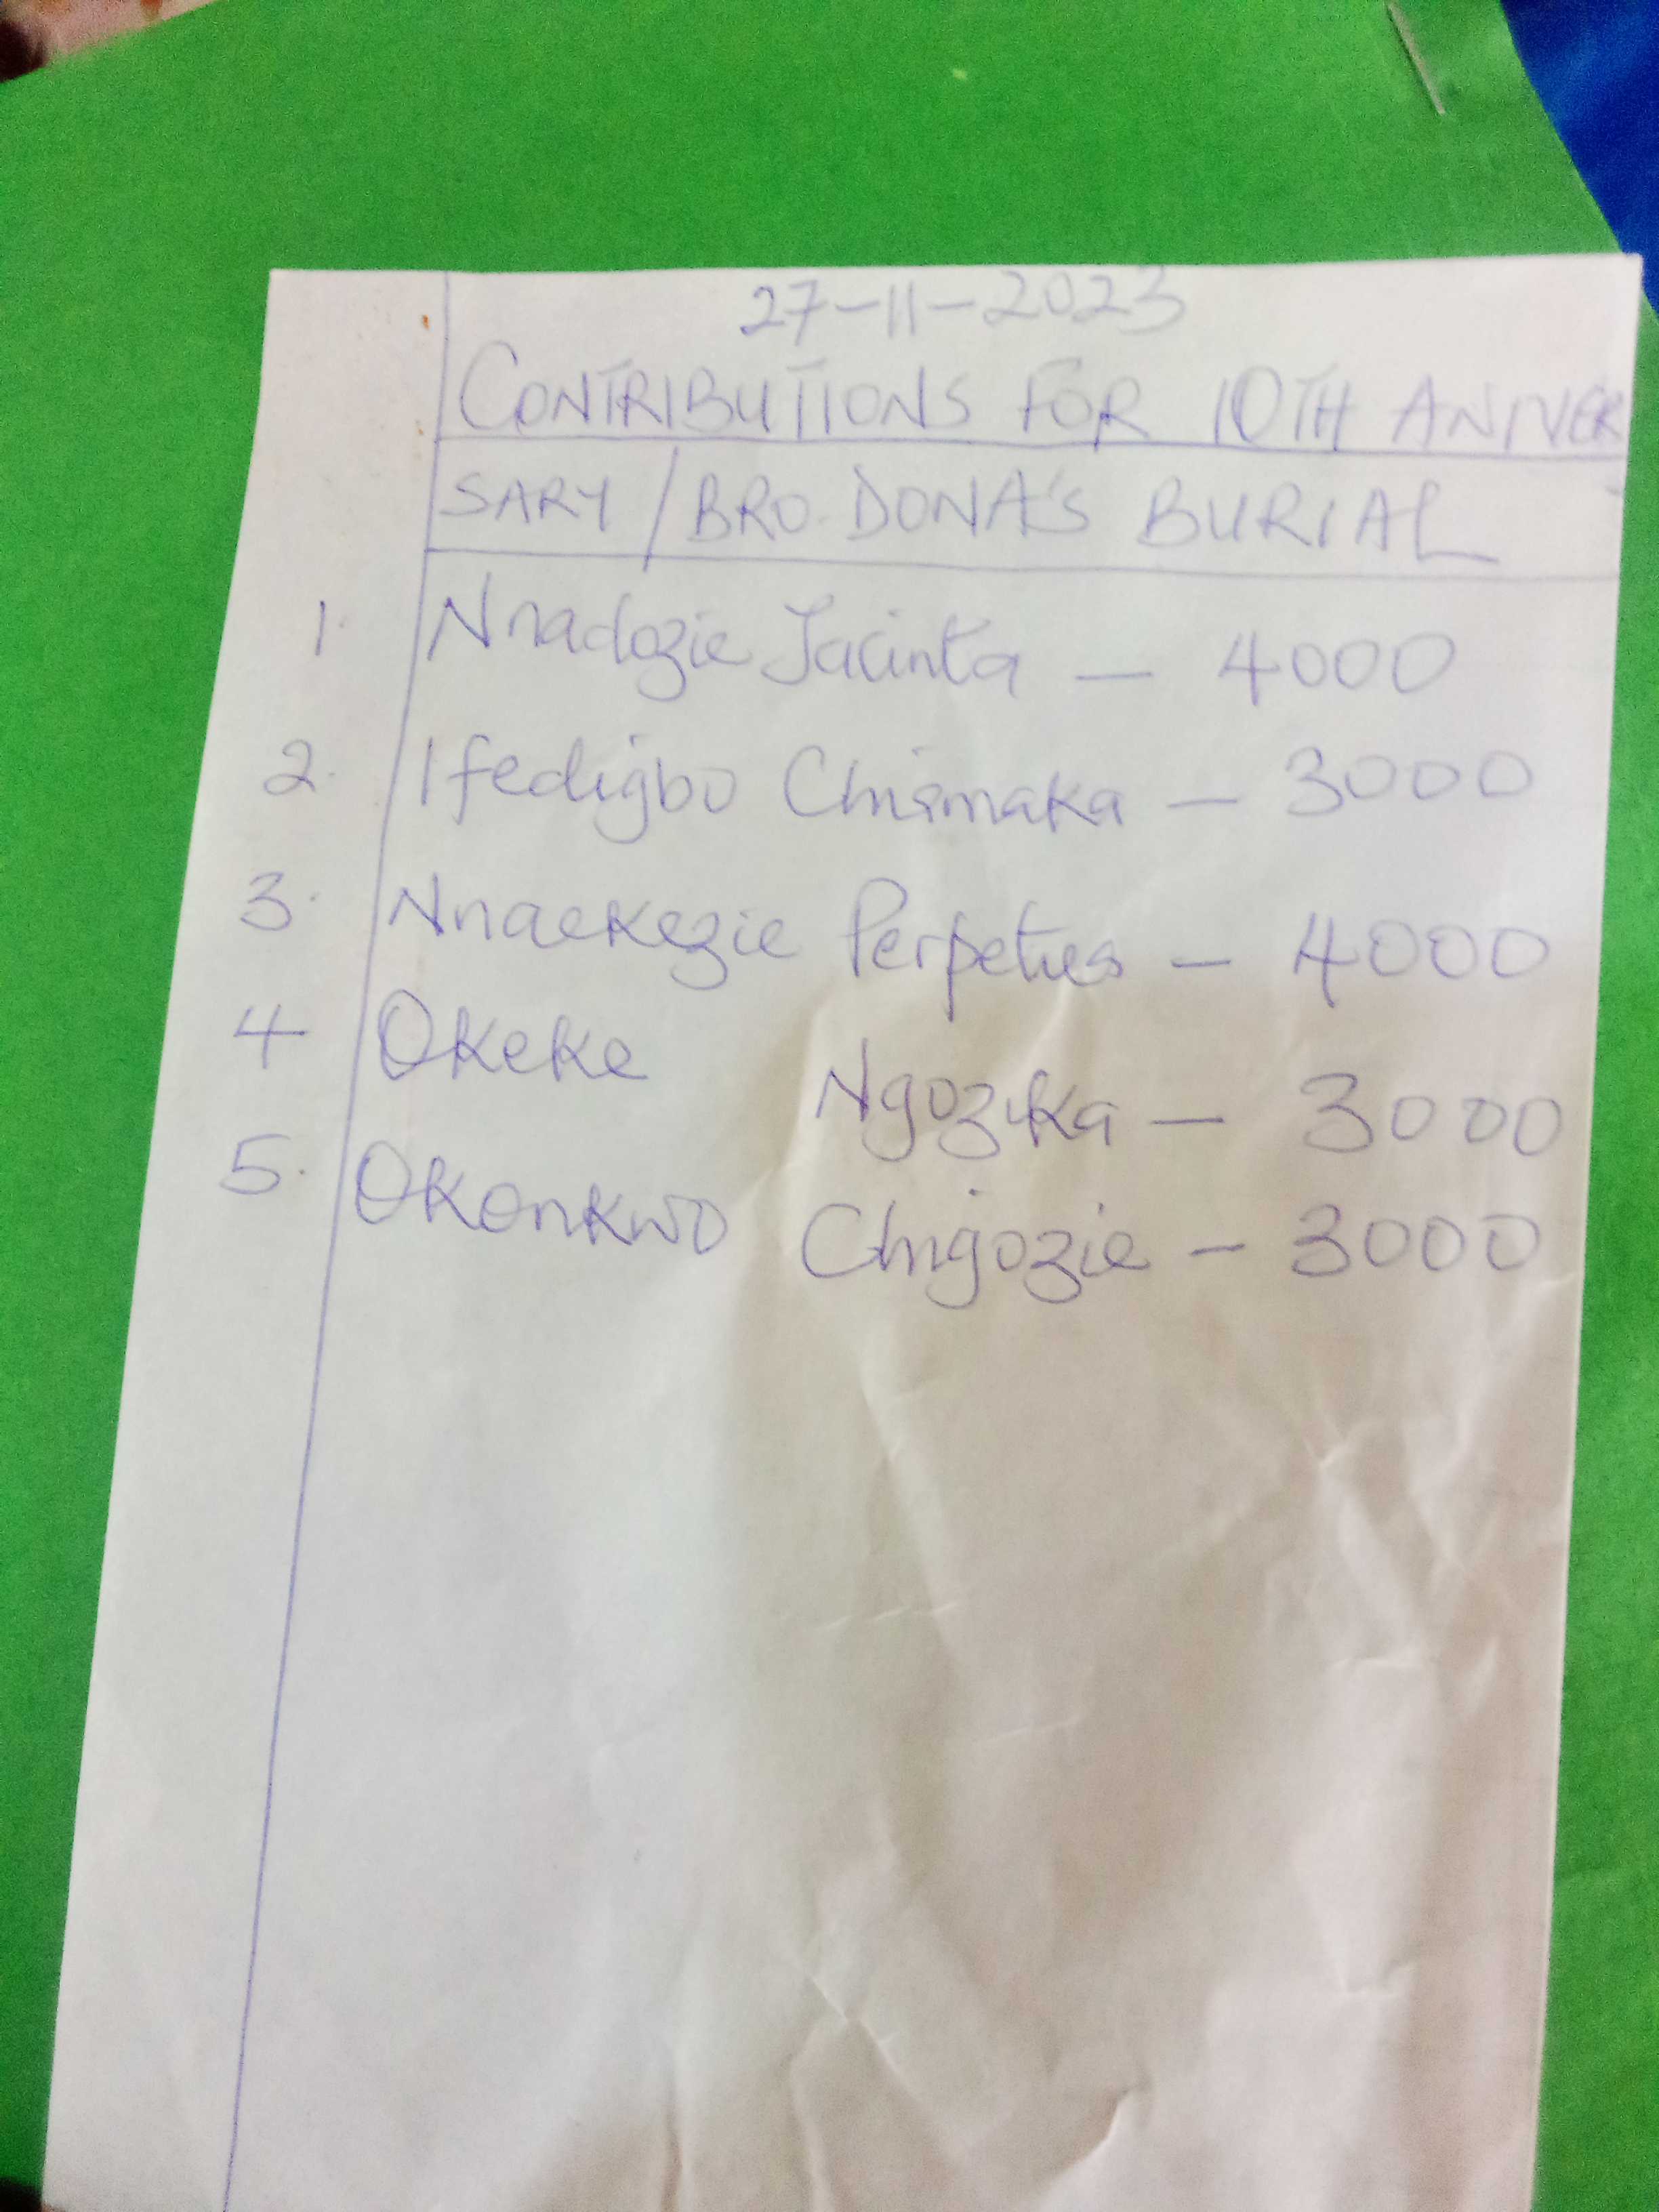 27-11-2023
CONTRIBUTIONS FOR 10TH ANIVER
SARY / BRO. DONA'S BURIAL
1. Nnadozie Jacinta — 4000
2. Ifedigbo Chismaka — 3000
3. Nnaekezie Perpetus — 4000
4 Okeke Ngozika — 3000
5. Okonkwo Chigozie — 3000